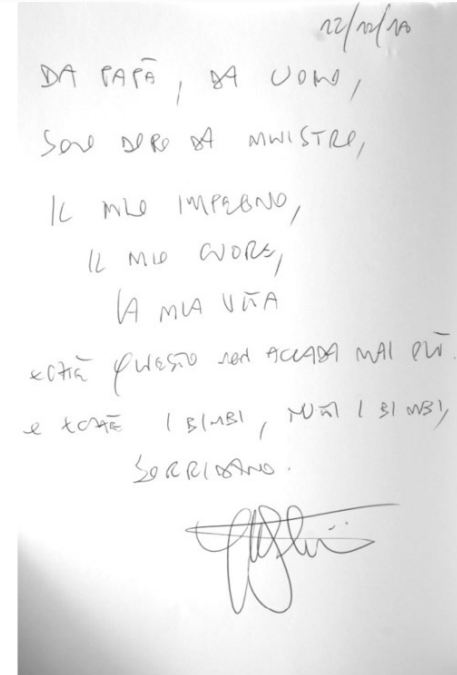 12/12/18
DA PAPÀ, DA UOMO,
SOLO DOPO DA MINISTRO,
IL MIO IMPEGNO,
IL MIO CUORE,
LA MIA VITA
PERCHÉ QUESTO non ACCADA MAI PIÙ.
e PERCHÉ I BIMBI, TUTTI I BIMBI,
SORRIDANO.